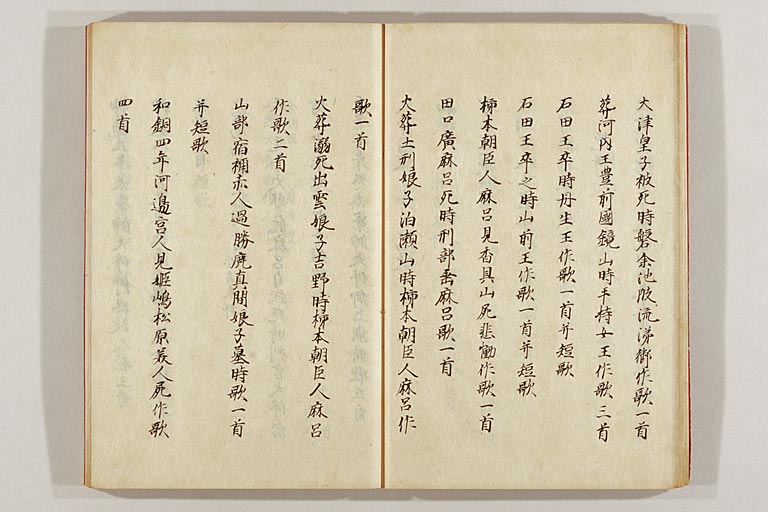 大津皇子被死時磐余池陂流涕御作歌一首
葬河内王豊前國鏡山時手持女王作歌三首
石田王卒時丹生王作歌一首并短歌
石田王卒之時山前王作歌一首并短歌
柿本朝臣人麻呂見香具山屍悲慟作歌一首
田口廣麻呂死時刑部垂麻呂歌一首
火葬土形娘子泊瀬山時柿本朝臣人麻呂作
歌一首
火葬溺死出雲娘子吉野時柿本朝臣人麻呂
作歌二首
山部宿禰赤人過勝鹿真間娘子墓時歌一首
并短歌
和銅四年河邊宮人見姫嶋松原美人屍作歌
四首